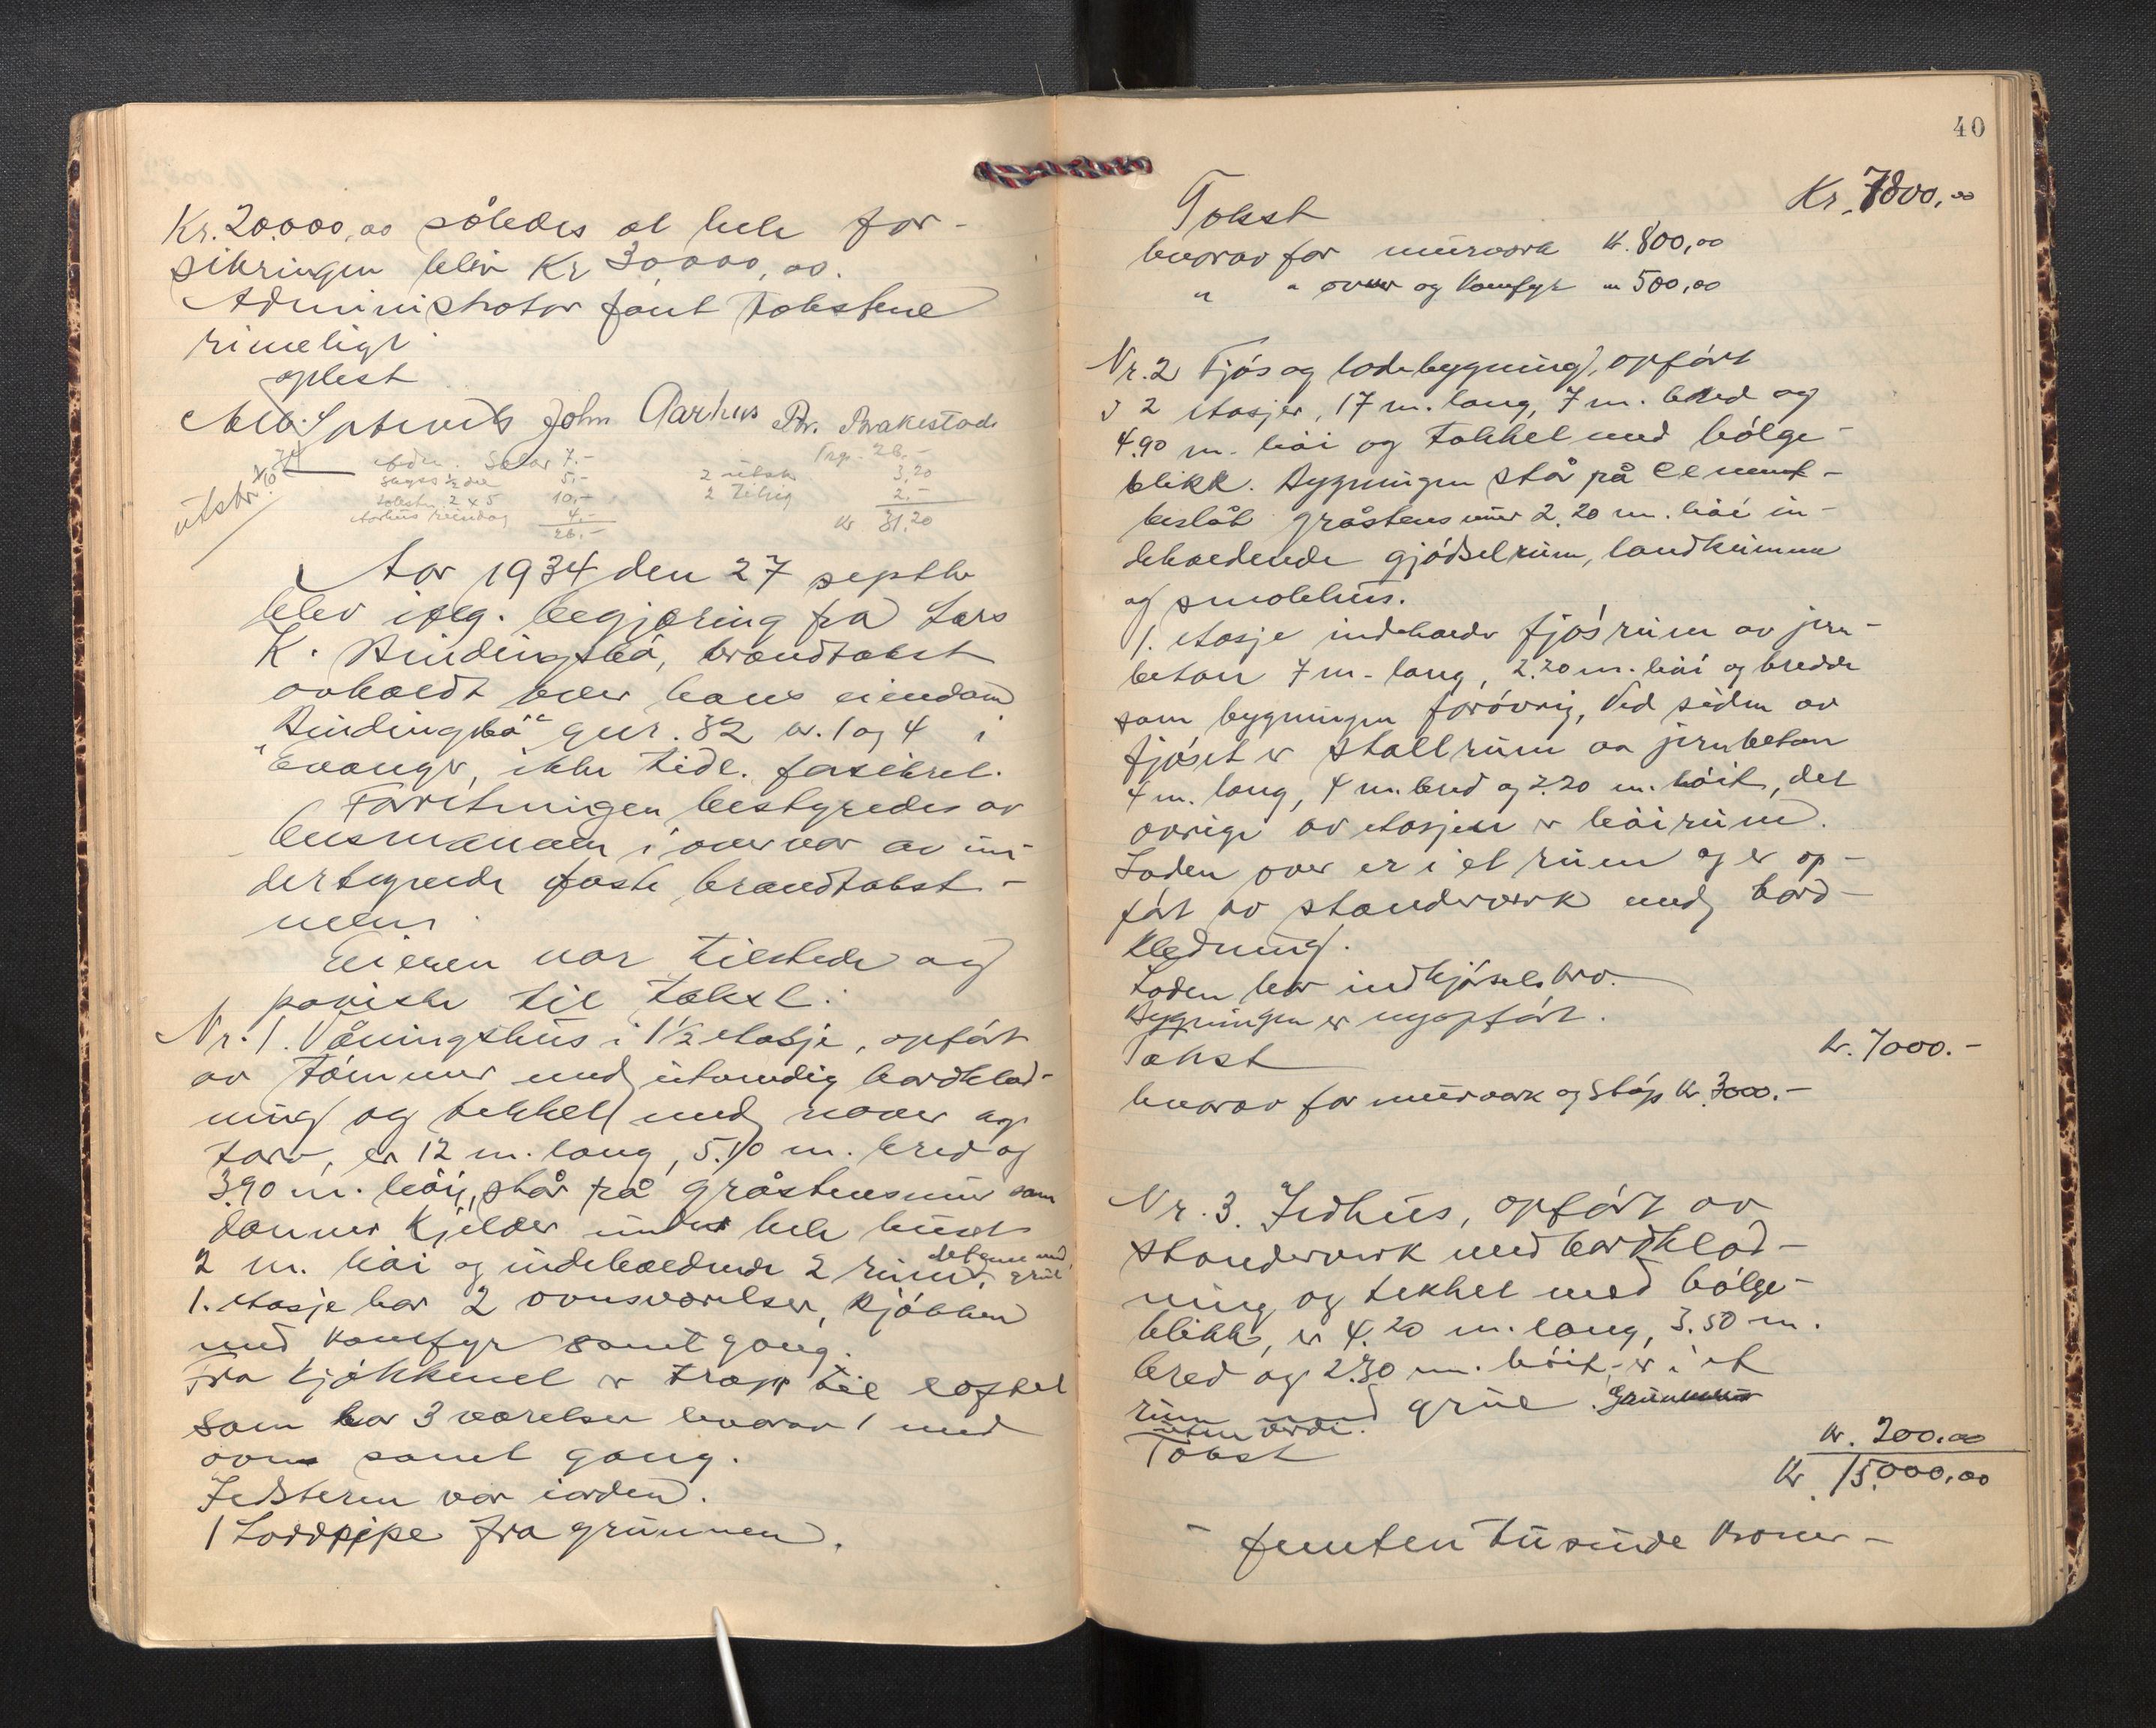 Kr. 20.000,00 således at hele for-
sikringen blir Kr 30,000,00.
Administrator fant takstene
rimeligt
oplest
John Aarhus Br. Brakestad
utstr. 2/10 34
Adm. Sakar 7.- Trsp. 26.-
5.- 2 utskr. 3,20
2 x 5 10,- 2 2,-
Aarhus 4.- Kr 31,20
26.-
Aar 1934 den 27 septbr
blev iflg. begjæring fra Lars
K. Bindingsbø, brandtakst
avholdt over hans eiendom
"Bindingsbø" gnr. 82 br. 1 og 4 i
Evanger, ikke tidl. forsikret.
Forretningen bestyredes av
lensmannen i overvær av un-
dertegnede faste brandtakst-
menn.
Eieren var tilstede og
påviste til takst:
Nr. 1. Våningshus i 1½ etasje, opført
av tømmer med utvendig bordklæd-
ning og tekket med never og
torv, er 12 m. lang, 5.10 m. bred og
3.90 m. høi, står på gråstensmur som
danner kjelder under hele huset
2 m. høi og indeholdende 2 rum, det ene med grue
1. etasje har 2 ovnsværelser, kjøkken
med komfyr samt gang.
Fra kjøkkenet er trapp til loftet
som har 3 værelser hvorav 1 med
ovn samt gang.
Ildsteren var iorden.
1 Loddpipe fra grunnen.
40
Takst Kr. 7800,00
hvorav for murverk kr. 800,00
" " ovner og komfyr " 500,00
Nr. 2 Fjøs og ladebygning, opført
i 2 etasjer, 17 m. lang, 7 m. bred og
4.90 m. høi og takket med bølge-
blikk. Bygningen står på cement-
beslåt gråstensmur 2.20 m. høi in-
deholdende gjødselrum, landkummer
og smalehus.
1. etasje indeholder fjøsrum av jern-
beton 7 m. lang, 2.20 m. høi og bredde
som bygningen forøvrig, Ved siden av
fjøset er stallrum av jernbeton
4 m. lang, 4 m. bred og 2.20 m. høit, det
øvrige av etasjen er høirum.
Laden over er i et rum og er op-
ført av standerverk med bord-
kledning.
Laden har indkjørselsbro.
Bygningen er nyopført.
Takst kr. 7000.-
hvorav for murverk og støp kr. 3000.-
Nr. 3. Ildhus, opført av
standerverk med bordklæd-
ning og tekket med bølge-
blikk, er 4.20 m. lang, 3.50 m.
bred og 2.30 m. høit, er i et
rum med grue. Gruemur
uten verdi.
Takst kr. 200,00
Kr. 15.000,00
- femten tusinde kroner -